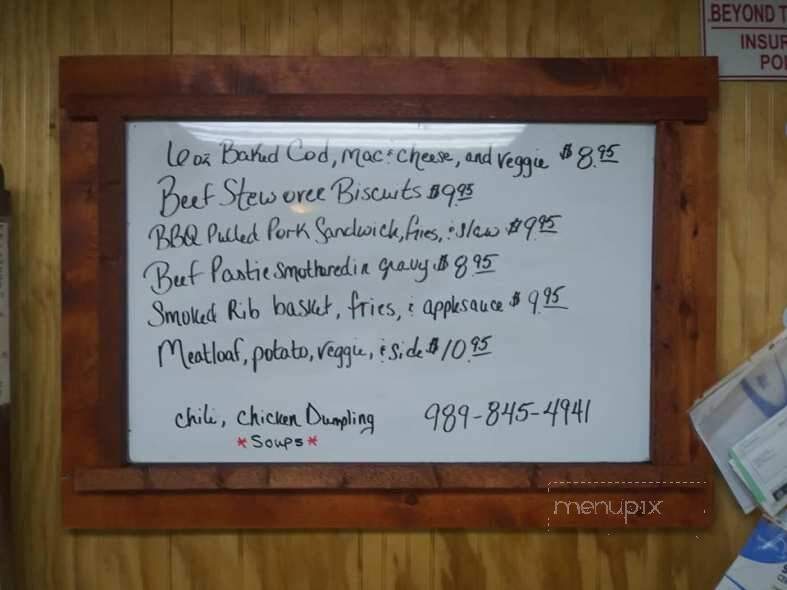 BEYOND T
INSUR
PO
6 oz Baked Cod, mac & cheese, and veggie $8.95
Beef Stew over Biscuits $9.95
BBQ Pulled Pork Sandwich, fries, & slaw $9.95
Beef Pastie smothered in gravy $8.95
Smoked Rib basket, fries, & applesauce $9.95
Meatloaf, potato, veggie, & side $10.95
chili, Chicken Dumpling 989-845-4941
*Soups*
menupix